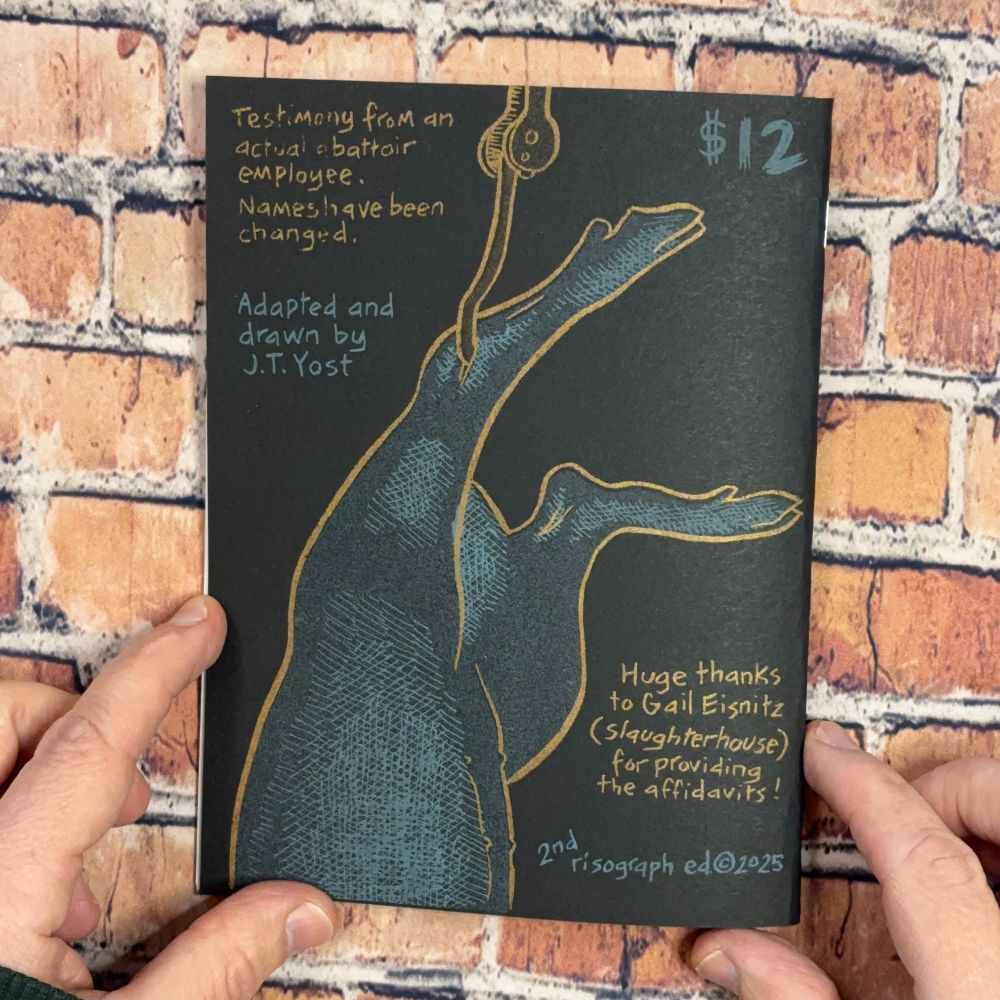 Testimony from an
actual abattoir
employee.
Names have been
changed.
$12
Adapted and
drawn by
J.T. Yost
Huge thanks
to Gail Eisnitz
(slaughterhouse)
for providing
the affidavits!
2nd
risograph ed©2025